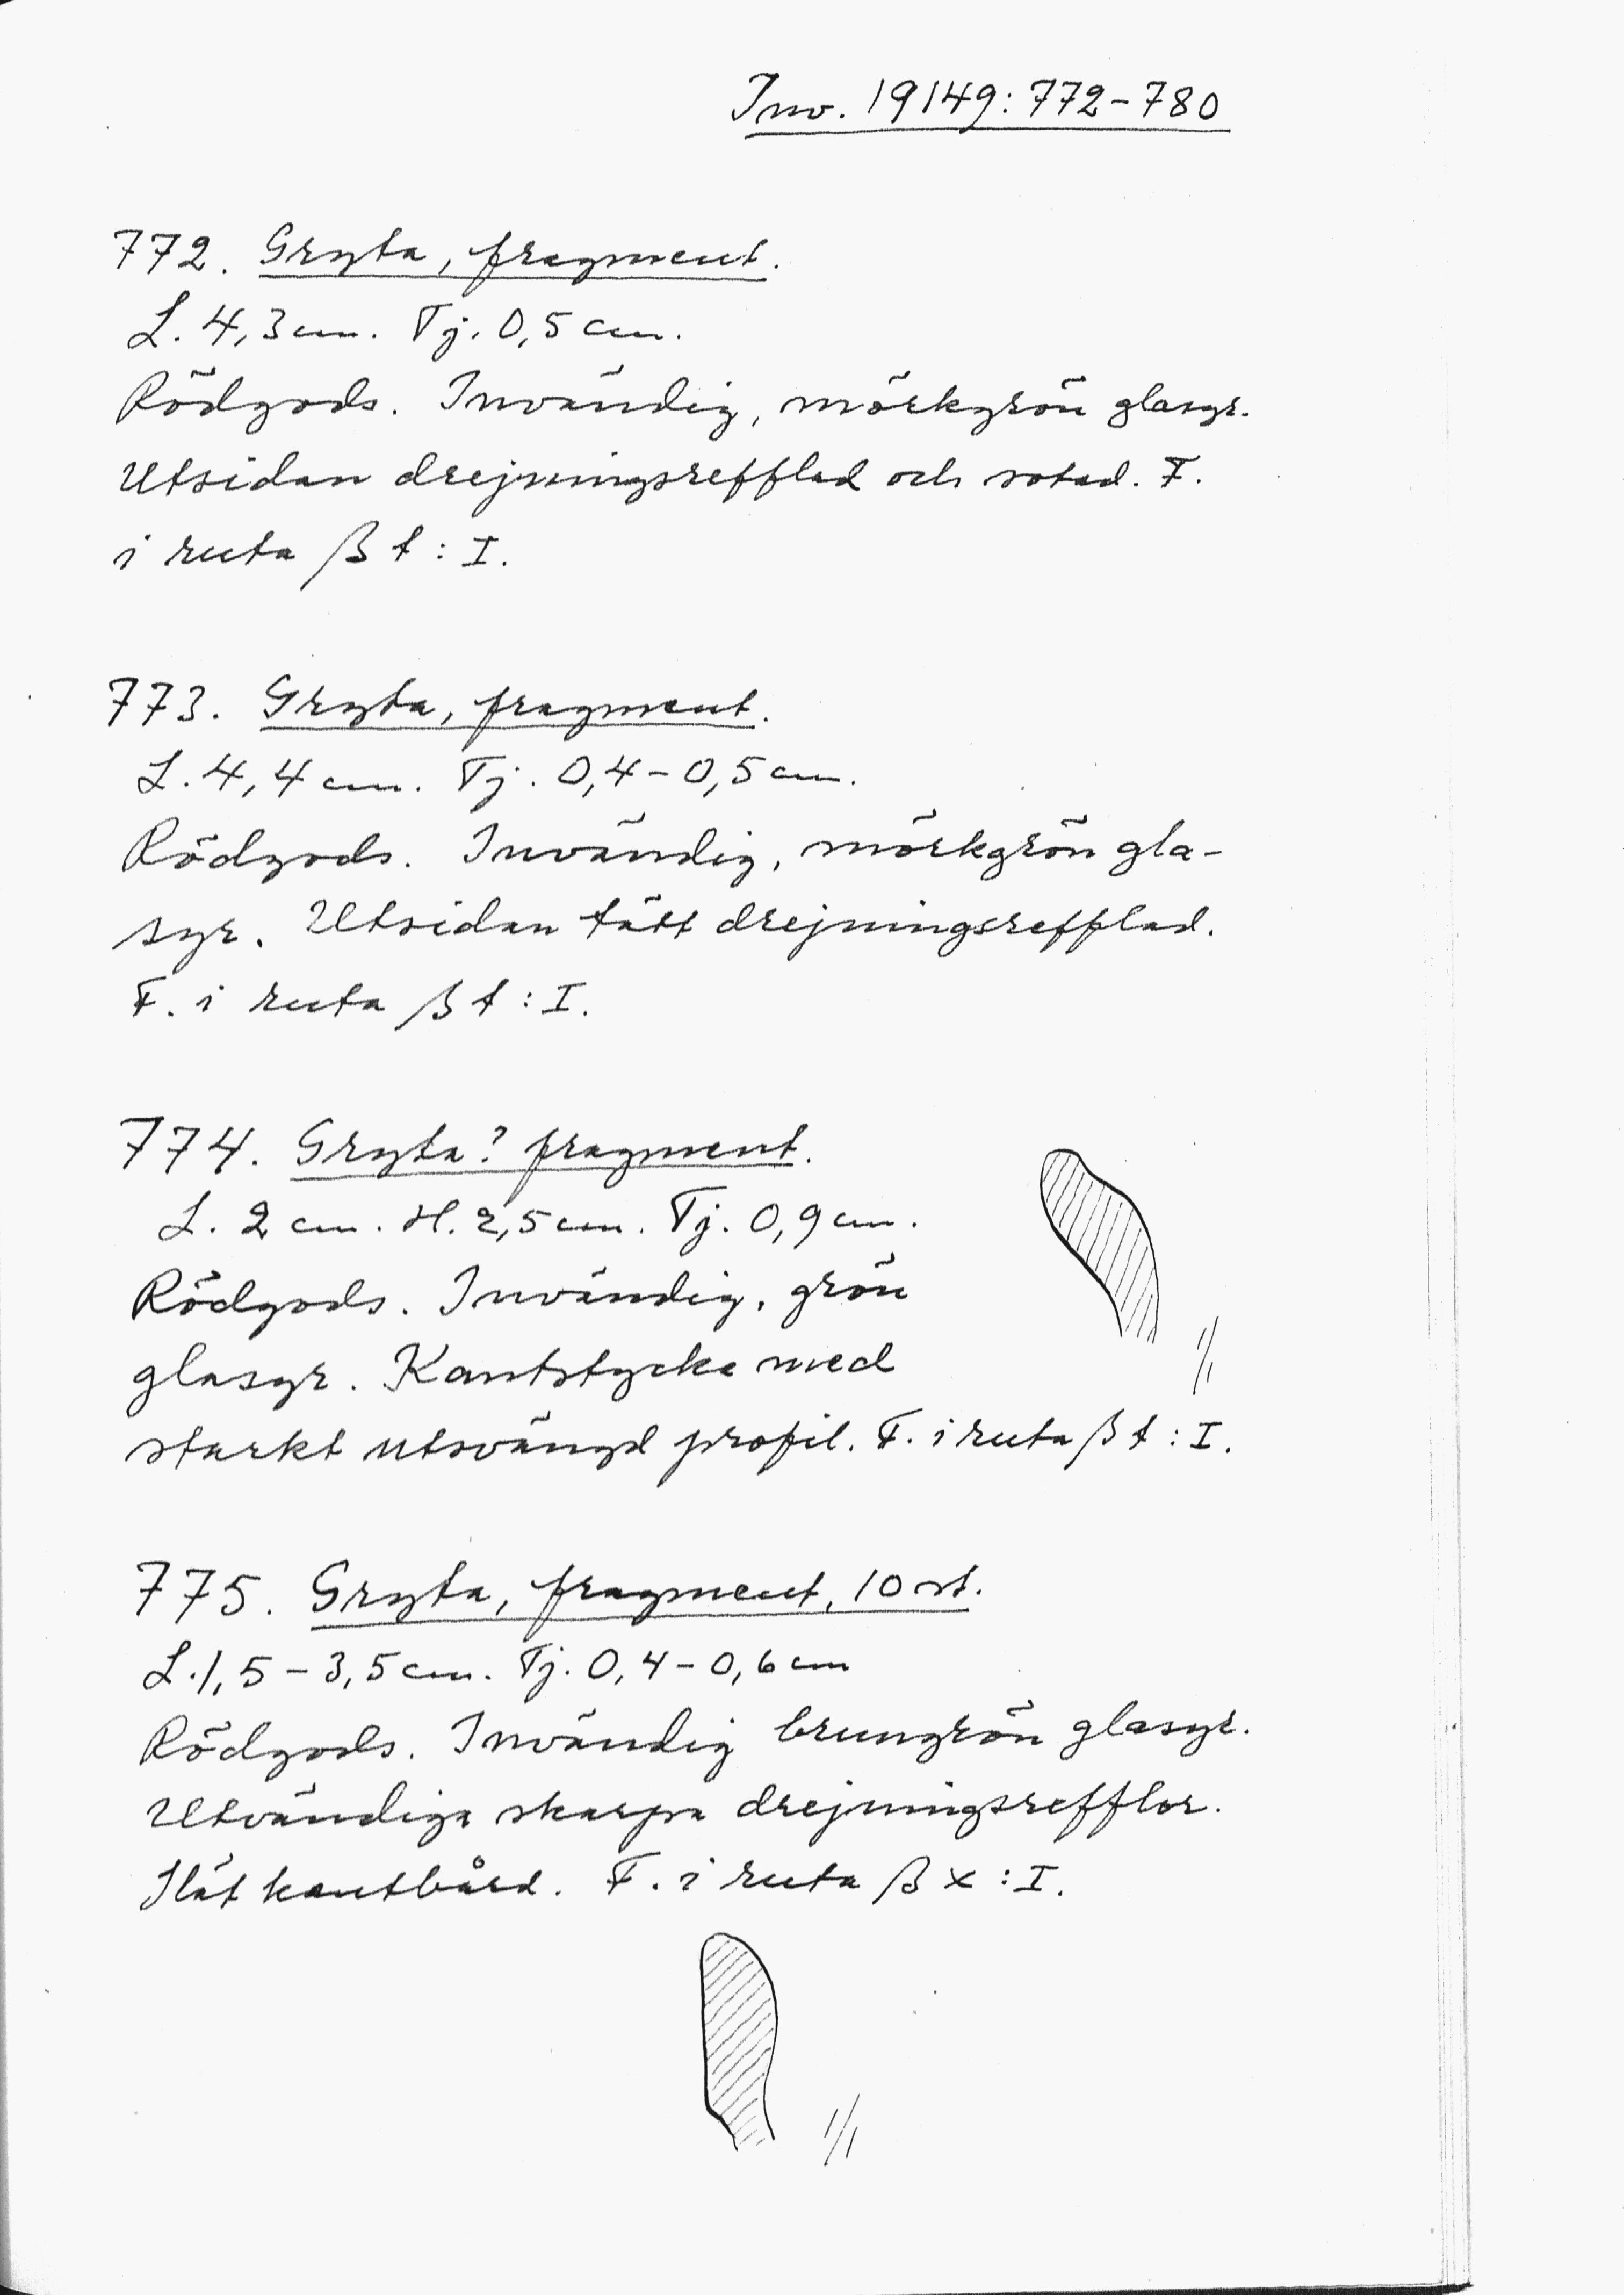 Inv. 19149:772-780
772. Gryta, fragment.
L. 4,3 cm. Tj. 0,5 cm.
Rödgods. Invändig, mörkgrön glasyr.
Utsidan drejningsrefflad och sotad. F.
i ruta β t : I.
773. Gryta, fragment.
L. 4,4 cm. Tj. 0,4-0,5 cm.
Rödgods. Invändig, mörkgrön gla-
syr. Utsidan tätt drejningsrefflad.
F. i ruta β t : I.
774. Gryta? fragment.
L. 2 cm. H. 2,5 cm. Tj. 0,9 cm.
Rödgods. Invändig, grön
glasyr. Kantstycke med
1/1
starkt utsvängd profil. F. i ruta β t : I.
775. Gryta, fragment, 10 st.
L. 1,5-3,5 cm. Tj. 0,4-0,6 cm
Rödgods. Invändig brungrön glasyr.
Utvändiga skarpa drejningsrefflor.
Slät kantbård. F. i ruta β x : I.
1/1